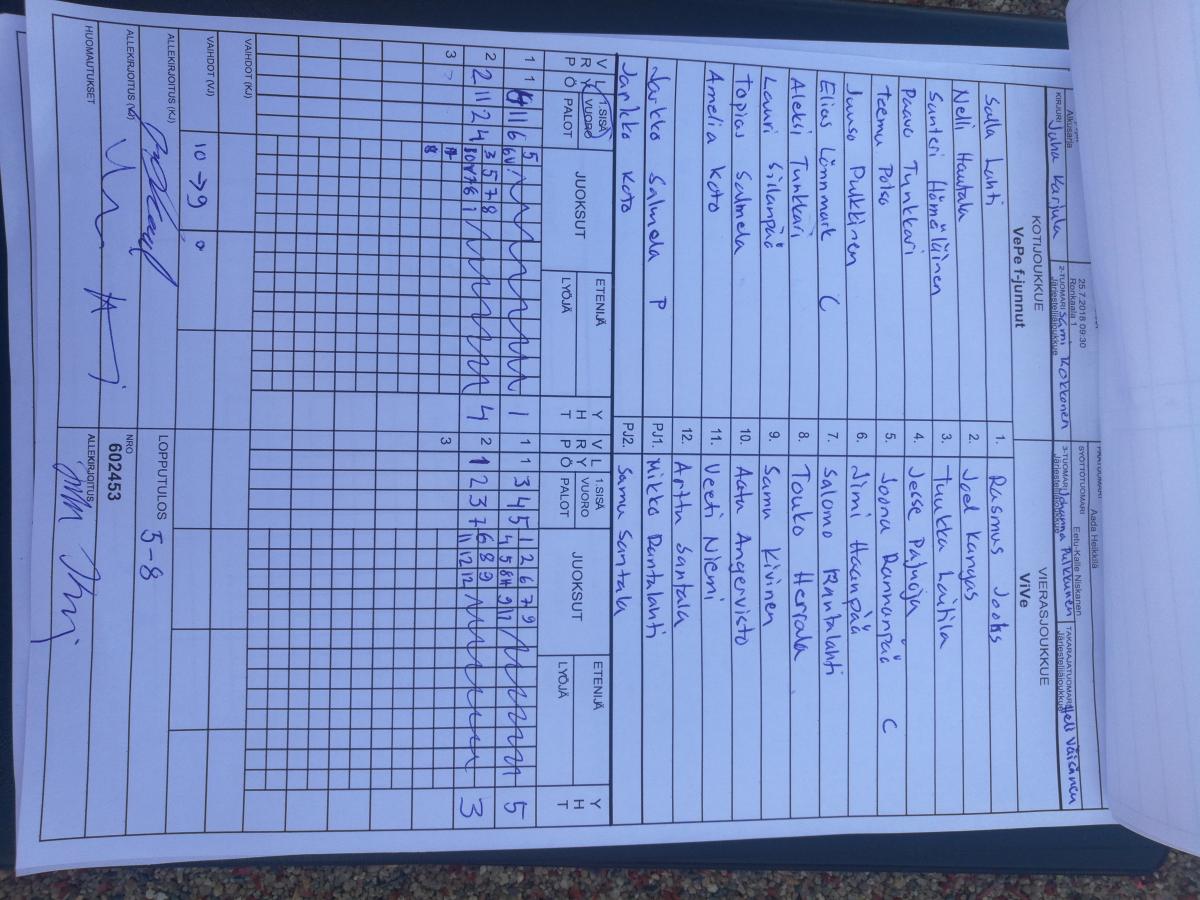 Alkusarja
25.7.2018 09:30
Ronkaala 1
Aada Heikkilä
SYÖTTÖTUOMARI Eetu-Kalle Niskanen
KIRJURI Juha Karjula
2-TUOMARI Sami Kokkonen
Järjestelijäjoukkue
3-TUOMARI Johanna Pulkkinen
Järjestelijäjoukkue
TAKARAJATUOMARI Heli Väisänen
Järjestelijäjoukkue
KOTIJOUKKUE
VePe f-junnut
VIERASJOUKKUE
ViVe
Salla Lahti 1. Rasmus Jootes
Nelli Hautala 2. Joel Kangas
Santeri Hämäläinen 3. Tuukka Laitila
Paavo Tunkkari 4. Jesse Pajuoja
Teemu Poko 5. Joona Rannanpää C
Juuso Pulkkinen 6. Nimi Haanpää
Elias Lönnmark C 7. Salomo Rantalahti
Aleksi Tunkkari 8. Touko Herrala
Lauri Sillanpää 9. Samu Kivinen
Topias Salmela 10. Aatu Angervisto
Amelia Koto 11. Veeti Niemi
12. Arttu Santala
Jarkko Salmela P PJ1. Mikko Rantalahti
Jarkko Koto PJ2. Samu Santala
V L R Y P Ö 1.SISÄ VUORO PALOT JUOKSUT ETENIJÄ LYÖJÄ Y H T V L R Y P Ö 1.SISÄ VUORO PALOT JUOKSUT ETENIJÄ LYÖJÄ Y H T
1 1 11 6 5 1 1 1 3 4 5 1 2 6 7 9 5
4 5 8 9 11
2 2 11 2 4 3 5 7 8 4 2 1 2 3 7 6 8 9 3
11 12 12
3 3
VAIHDOT (KJ)
VAIHDOT (VJ) 10 → 9
ALLEKIRJOITUS (KJ)
LOPPUTULOS 5-8
ALLEKIRJOITUS (VJ)
NRO
602453
HUOMAUTUKSET
ALLEKIRJOITUS